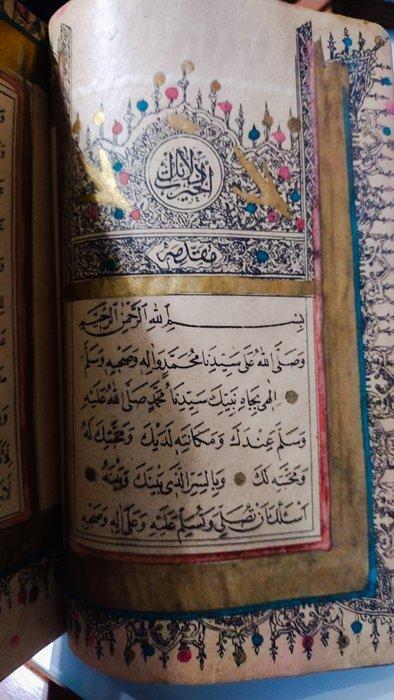 دلائل الخيرات
مقدمة
بِسْمِ اللهِ الرَّحْمٰنِ الرَّحِيْمِ
وَصَلَّى اللهُ عَلَى سَيِّدِنَا مُحَمَّدٍ وَاٰلِهِ وَصَحْبِهِ وَسَلَّمَ
اِلٰهِى بِجَاهِ نَبِيِّكَ سَيِّدِنَا مُحَمَّدٍ صَلَّى اللهُ عَلَيْهِ
وَسَلَّمَ عِنْدَكَ وَمَكَانَتِهِ لَدَيْكَ وَمَحَبَّتِكَ لَهُ
وَمَحَبَّتِهِ لَكَ وَبِالسِّرِّ الَّذِى بَيْنَكَ وَبَيْنَهُ
اَسْئَلُكَ اَنْ تُصَلِّىَ وَتُسَلِّمَ عَلَيْهِ وَعَلٰى اٰلِهِ وَصَحْبِهِ